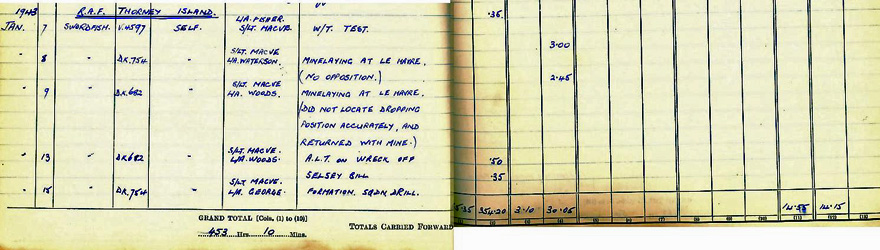 1943 R.A.F. THORNEY ISLAND.
JAN. 7 SWORDFISH. V.4597 SELF. L/A. FISHER. S/LT. MACVE. W/T. TEST. .35
8 " DK.754 " S/LT. MACVE L/A. WATERSON. MINELAYING AT LE HAVRE. 3.00
(NO OPPOSITION.)
" 9 " DK.682 " S/LT. MACVE L/A. WOODS. MINELAYING AT LE HAVRE. 2.45
(DID NOT LOCATE DROPPING
POSITION ACCURATELY, AND
RETURNED WITH MINE.)
" 13 " DK682 " S/LT. MACVE. L/A. WOODS. A.L.T. ON WRECK OFF .50
SELSEY BILL
" 15 DK.754 " S/LT. MACVE. L/A. GEORGE. FORMATION. SQDN. DRILL. .35
GRAND TOTAL [Cols. (1) to (10)]
453 Hrs. 10 Mins.
TOTALS CARRIED FORWARD 354.20 3.10 30.05 14.15